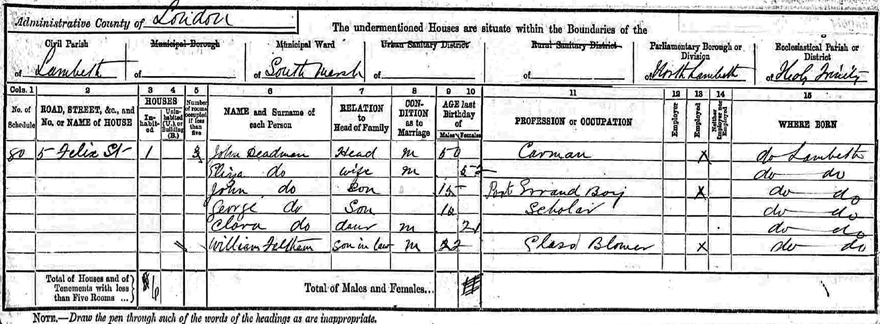 Administrative County of London
The undermentioned Houses are situate within the Boundaries of the
Civil Parish
of Lambeth
Municipal Borough
of
Municipal Ward
of South Marsh
Urban Sanitary District
of
Rural Sanitary District
of
Parliamentary Borough or Division
of North Lambeth
Ecclesiastical Parish or District
of Holy Trinity
Cols. 1 2 3 4 5 6 7 8 9 10 11 12 13 14 15
No. of Schedule
ROAD, STREET, &c., and No. or NAME of HOUSE
HOUSES
Inhabited
Uninhabited (U.) or Building (B.)
Number of rooms occupied if less than five
NAME and Surname of each Person
RELATION to Head of Family
CONDITION as to Marriage
AGE last Birthday of
Males Females
PROFESSION or OCCUPATION
Employer
Employed
Neither Employer nor Employed
WHERE BORN
80 5 Felix St 1 3 John Deadman Head M 50 Carman X do Lambeth
Eliza do wife M do do
John do Son 15 Errand Boy X do do
George do Son 10 Scholar do do
Clara do daur M 21 do do
William Feltham son in law M 22 Glass Blower X do do
Total of Houses and of Tenements with less than Five Rooms ...
Total of Males and Females...
NOTE.—Draw the pen through such of the words of the headings as are inappropriate.